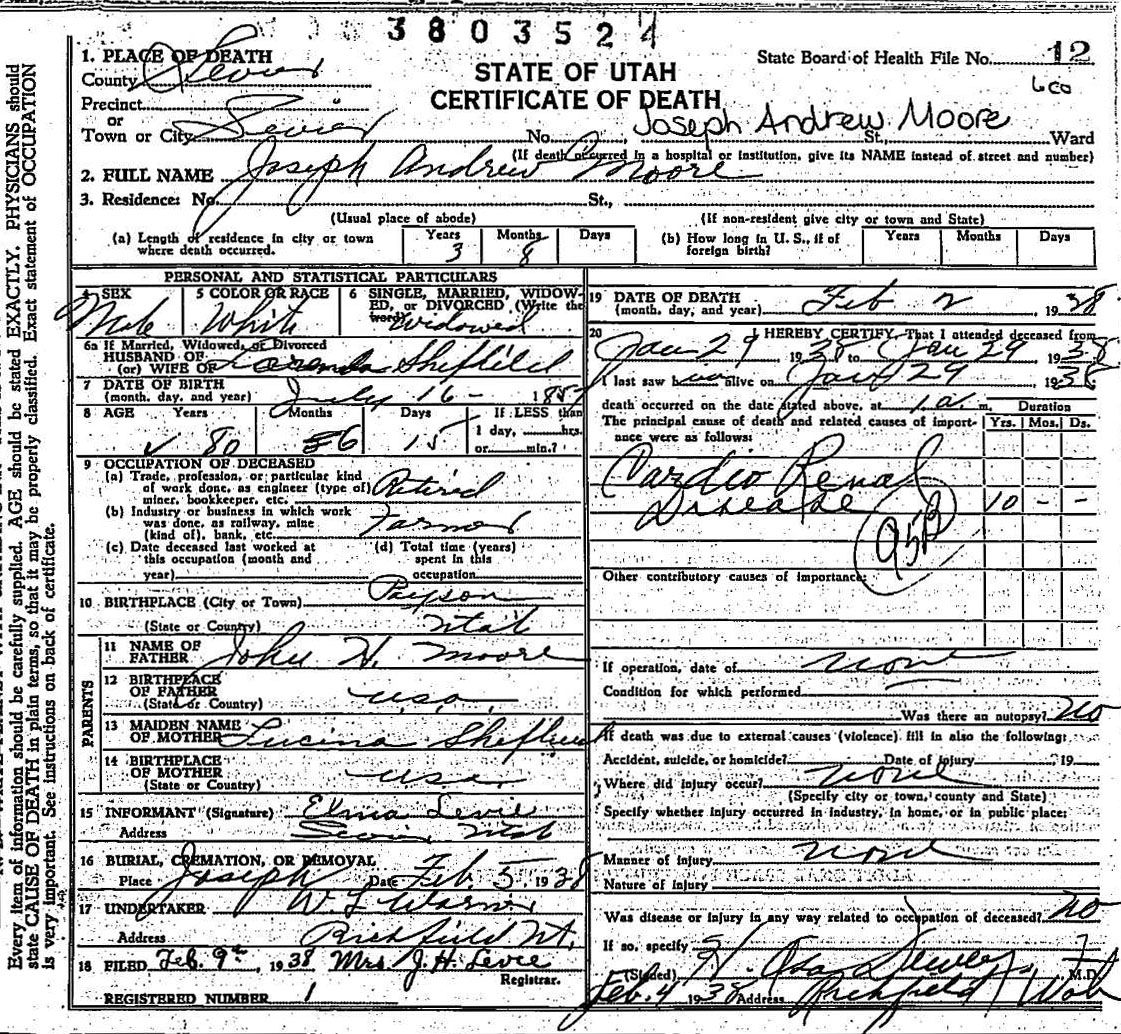 3803524
1. PLACE OF DEATH
County Sevier
Precinct
or
Town or City Sevier
STATE OF UTAH
CERTIFICATE OF DEATH
State Board of Health File No. 12
600
Joseph Andrew Moore
No. St., Ward
(If death occurred in a hospital or institution, give its NAME instead of street and number)
2. FULL NAME Joseph Andrew Moore
3. Residence: No. St.,
(Usual place of abode) (If non-resident give city or town and State)
(a) Length of residence in city or town where death occurred. Years 3 Months 8 Days
(b) How long in U. S., if of foreign birth? Years Months Days
PERSONAL AND STATISTICAL PARTICULARS
4 SEX 5 COLOR OR RACE 6 SINGLE, MARRIED, WIDOWED, or DIVORCED (Write the word)
Male White Widowed
6a If Married, Widowed, or Divorced
HUSBAND OF
(or) WIFE OF
7 DATE OF BIRTH
(month, day, and year) July 16 - 1857
8 AGE Years Months Days If LESS than
80 6 15 1 day, hrs.
or min.?
9 OCCUPATION OF DECEASED
(a) Trade, profession, or particular kind
of work done, as engineer (type of) Retired
miner, bookkeeper, etc.
(b) Industry or business in which work
was done, as railway, mine Farmer
(kind of), bank, etc.
(c) Date deceased last worked at (d) Total time (years)
this occupation (month and spent in this
year) occupation
10 BIRTHPLACE (City or Town) Payson
(State or Country) Utah
PARENTS
11 NAME OF
FATHER John H. Moore
12 BIRTHPLACE
OF FATHER U.S.A.
(State or Country)
13 MAIDEN NAME
OF MOTHER Lucina
14 BIRTHPLACE
OF MOTHER U.S.A.
(State or Country)
15 INFORMANT (Signature) Elma Levie
Address Sevier, Utah
16 BURIAL, CREMATION, OR REMOVAL
Place Joseph Date Feb. 5, 1938
17 UNDERTAKER W. L. Warner
Address Richfield Ut.
18 FILED Feb. 9th, 1938 Mrs. J. H. Levie
Registrar.
REGISTERED NUMBER 1
19 DATE OF DEATH
(month, day, and year) Feb 2 1938
20 I HEREBY CERTIFY, That I attended deceased from
Jan 29 1938 to Jan 29 1938
I last saw him alive on Jan 29 1938
death occurred on the date stated above, at 1 a. m. Duration
The principal cause of death and related causes of importance were as follows: Yrs. Mos. Ds.
Cardio Renal
Disease 10 - -
95B
Other contributory causes of importance:
If operation, date of none
Condition for which performed
Was there an autopsy? no
If death was due to external causes (violence) fill in also the following:
Accident, suicide, or homicide? Date of injury 19
Where did injury occur? none
(Specify city or town, county and State)
Specify whether injury occurred in industry, in home, or in public place:
Manner of injury none
Nature of injury
Was disease or injury in any way related to occupation of deceased? no
If so, specify
(Signed) M.D.
Feb. 4 1938 Address Richfield Utah
Every item of information should be carefully supplied. AGE should be stated EXACTLY. PHYSICIANS should
state CAUSE OF DEATH in plain terms, so that it may be properly classified. Exact statement of OCCUPATION
is very important. See instructions on back of certificate.